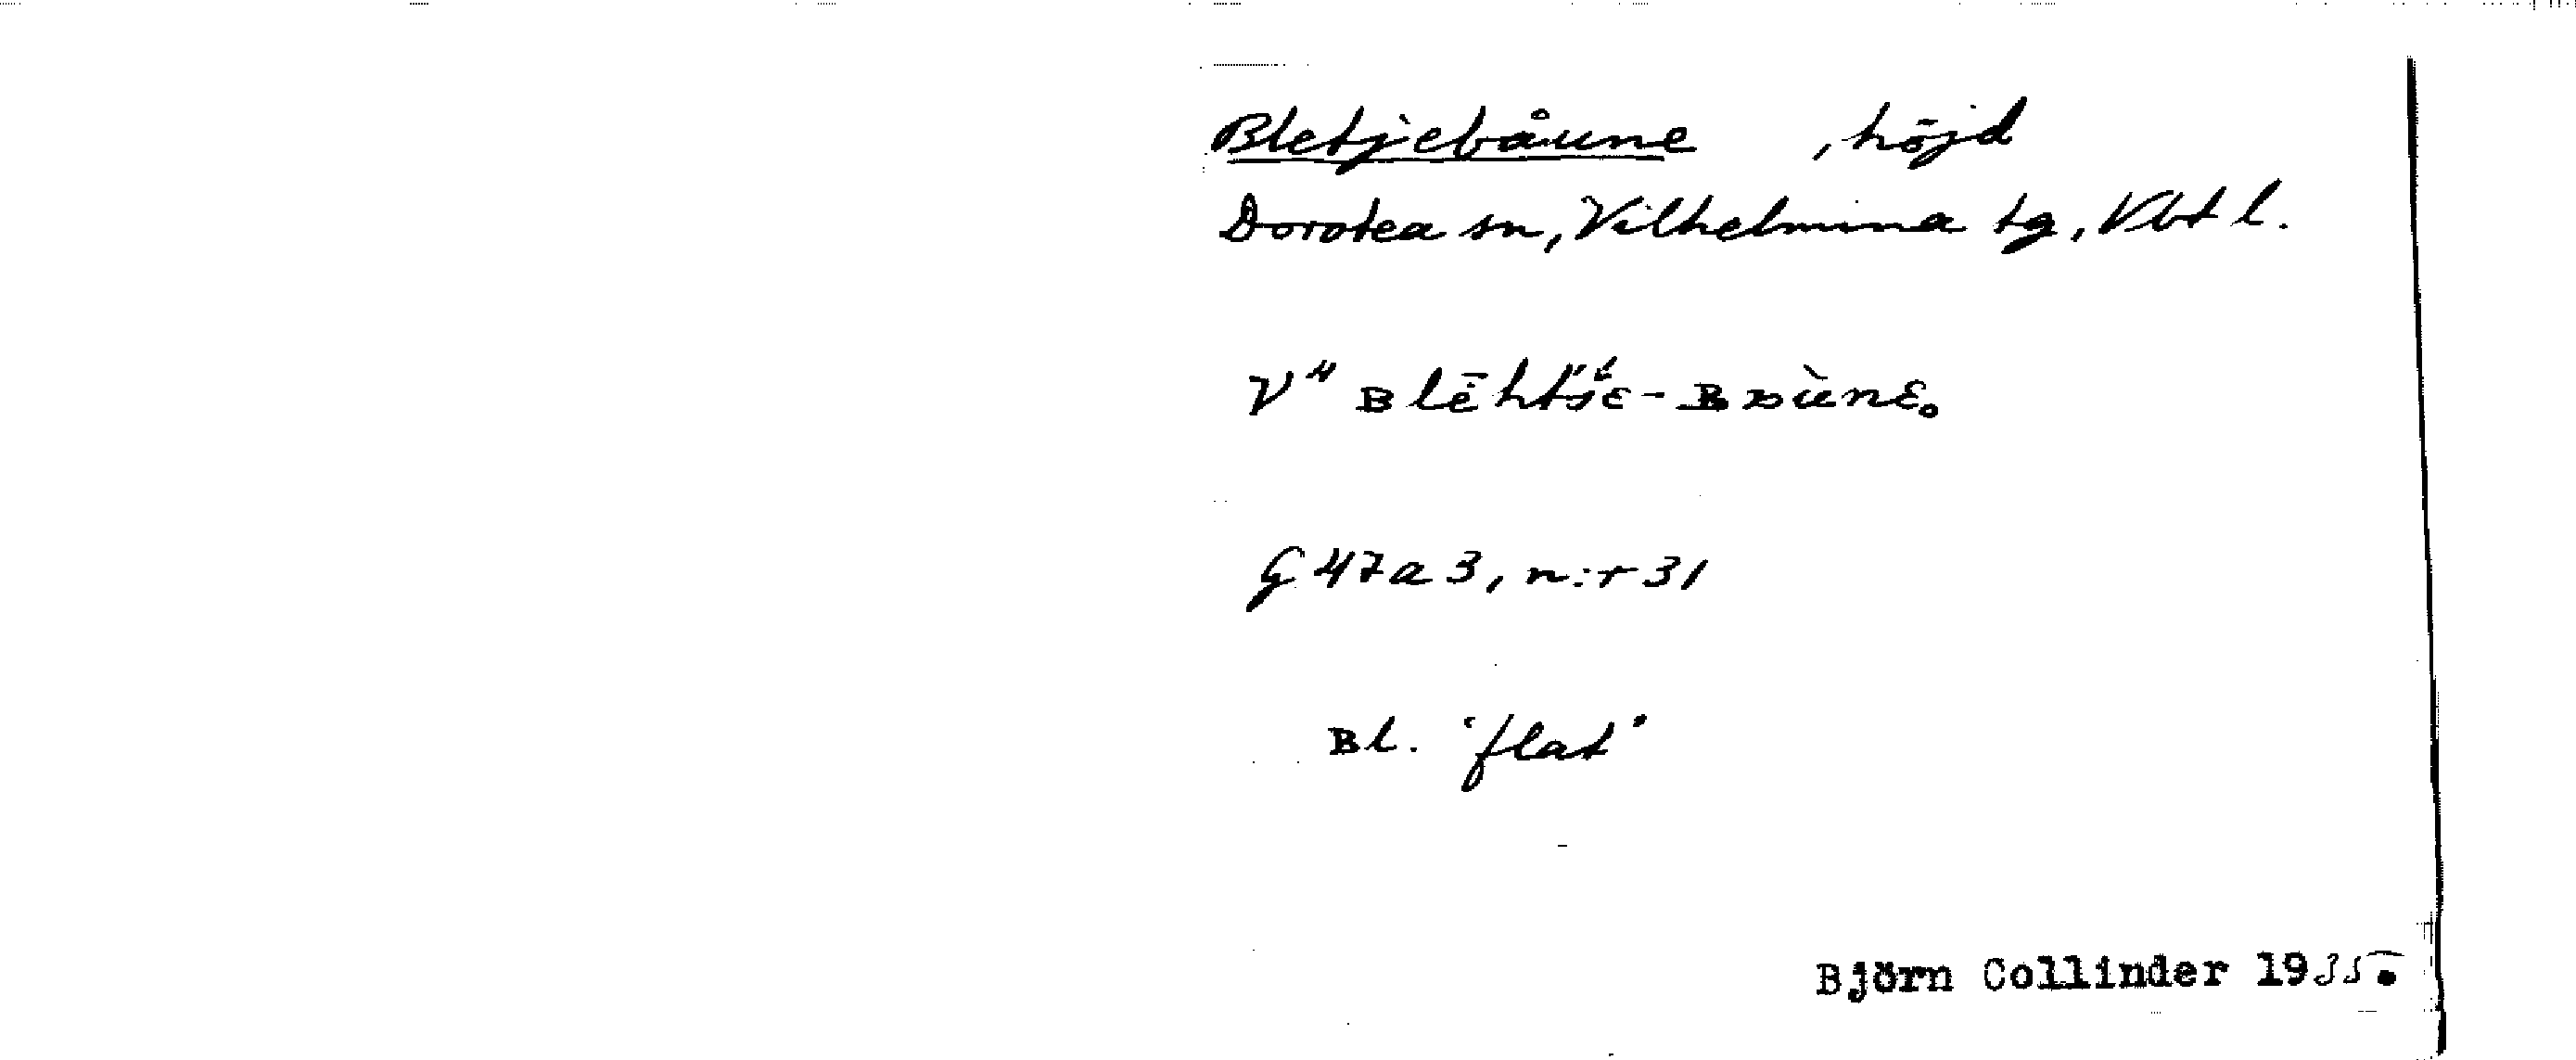 Bletjebåune , höjd
Dorotea sn, Vilhelmina tg, Vbt l.
G 47a 3, n:r 31
Bl. 'flat'
Björn Collinder 1935.